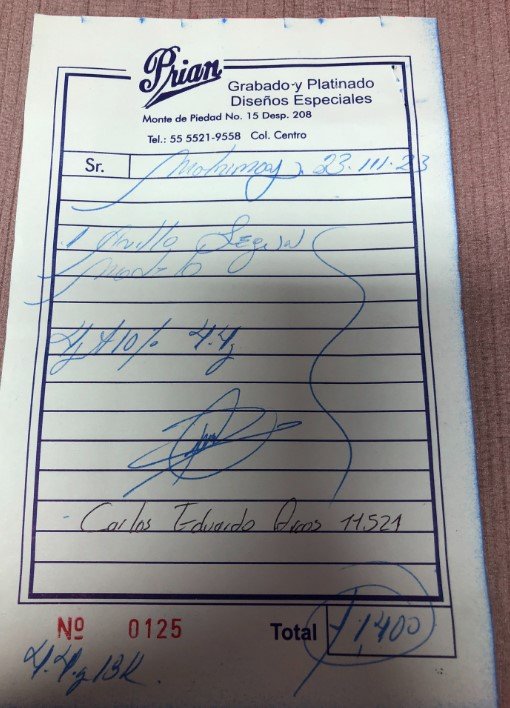 Prian
Grabado y Platinado
Diseños Especiales
Monte de Piedad No. 15 Desp. 208
Tel.: 55 5521-9558 Col. Centro
Sr. 23.III.23
1 Anillo Según
Modelo
4g +10% 4.4g
- Carlos Eduardo 11.521
Nº 0125
Total 1,400
4.4g